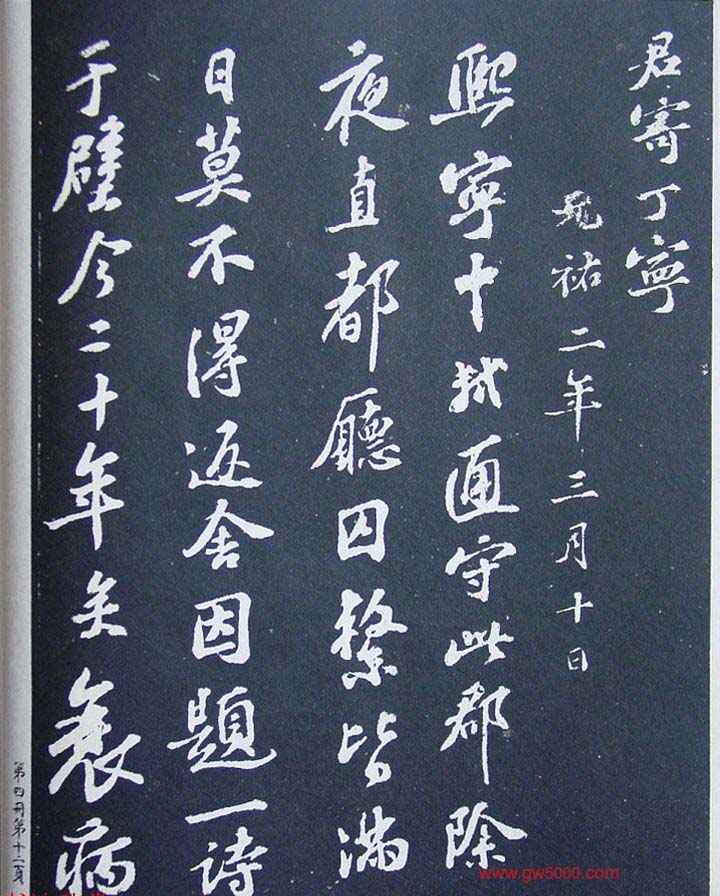 君寄丁寧
元祐二年三月十日
熙寧中軾通守此郡除
夜直都廳囚繫皆滿
日莫不得返舍因題一詩
于壁今二十年矣衰病
第四冊第十二頁
www.gw5000.com